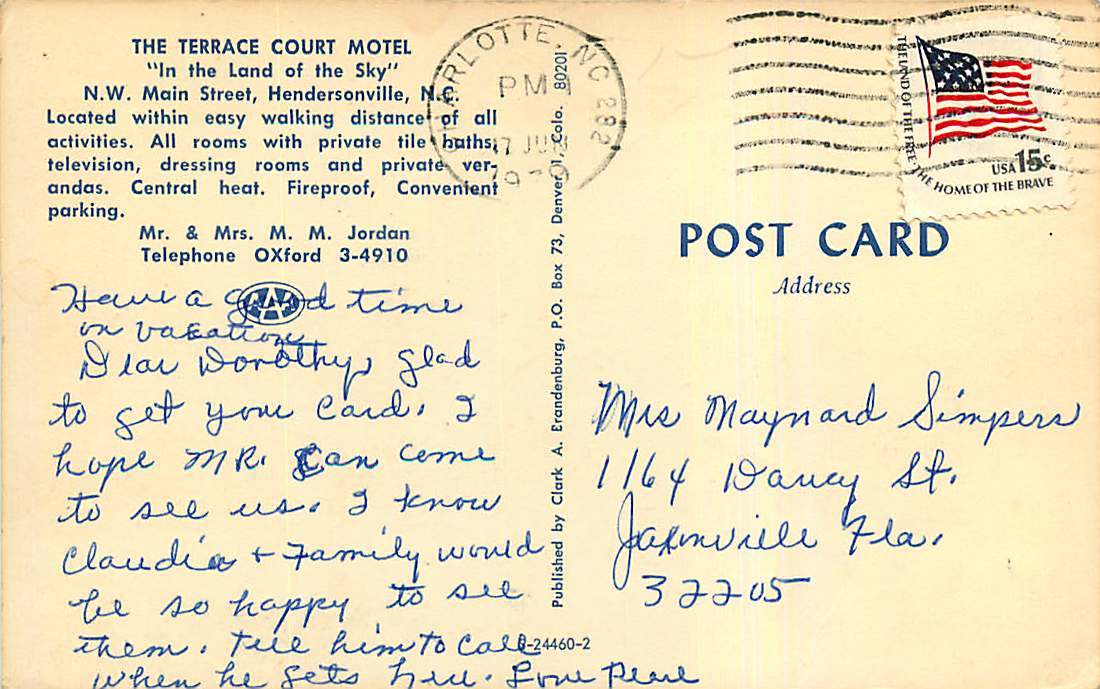 THE TERRACE COURT MOTEL
"In the Land of the Sky"
N.W. Main Street, Hendersonville, N.C.
Located within easy walking distance of all
activities. All rooms with private tile baths,
television, dressing rooms and private ver-
andas. Central heat. Fireproof, Convenient
parking.
Mr. & Mrs. M. M. Jordan
Telephone OXford 3-4910
AAA
Have a good time
on vacation
Dear Dorothy, glad
to get your card. I
hope MR. can come
to see us. I know
Claudia + Family would
be so happy to see
them. Tell him to call
when he gets here. Love Pearl
Published by Clark A. Brandenburg, P.O. Box 73, Denver 1, Colo. 80201
B-24460-2
CHARLOTTE, NC 282
PM
17 JUN
1979
THE LAND OF THE FREE, THE HOME OF THE BRAVE
USA 15c
POST CARD
Address
Mrs Maynard Simpers
1164 Dancy St.
Jaxonville Fla.
32205